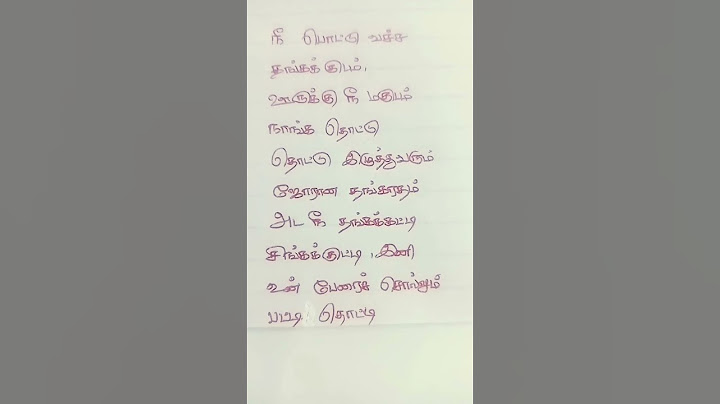 நீ பொட்டு வச்ச
தங்கக் குடம்,
ஊருக்கு நீ மகுடம்
நாங்க தொட்டு
தொட்டு இழுத்துவரும்
ஜோரான தங்கரதம்
அட நீ தங்கக்கட்டி
சிங்கக்குட்டி , இனி
உன் பேரைச் சொல்லும்
பட்டி தொட்டி